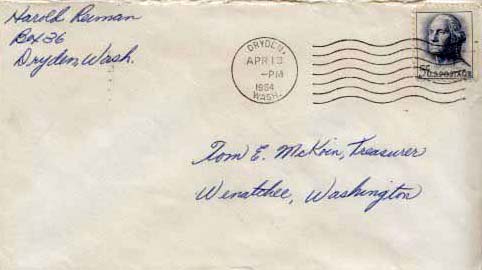 Harold Reiman
Box 36
Dryden, Wash.
DRYDEN,
APR 13
-PM
1964
WASH.
5¢ U.S. POSTAGE
Tom E. McKoin, Treasurer
Wenatchee, Washington